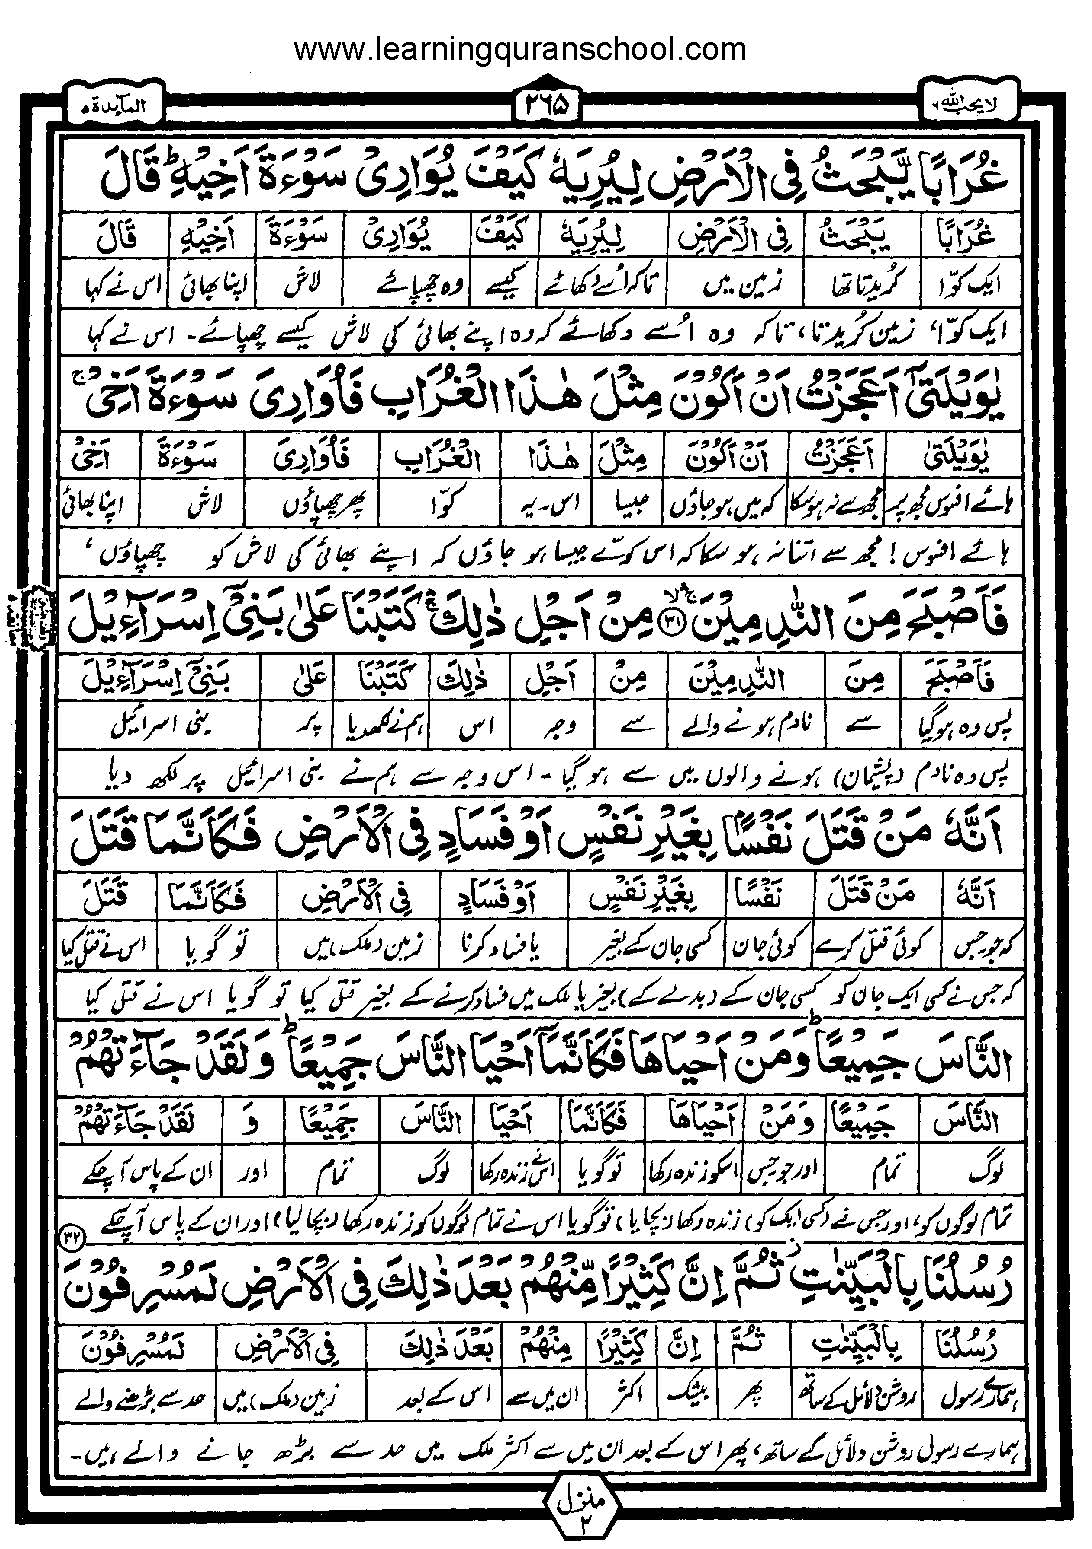 www.learningquranschool.com
لا یحب اللہ ٦ ٢٦٥ المآیدة ٥
غُرَابًا یَّبْحَثُ فِی الْاَرْضِ لِیُرِیَهٗ کَیْفَ یُوَارِیْ سَوْءَةَ اَخِیْهِ ؕ قَالَ
غُرَابًا یَبْحَثُ فِی الْاَرْضِ لِیُرِیَهٗ کَیْفَ یُوَارِیْ سَوْءَةَ اَخِیْهِ قَالَ
ایک کوّا کریدتا تھا زمین میں تاکہ اُسے دکھائے کیسے وہ چھپائے لاش اپنا بھائی اس نے کہا
ایک کوّا، زمین کریدتا، تاکہ وہ اُسے دکھائے کہ وہ اپنے بھائی کی لاش کیسے چھپائے۔ اس نے کہا
یٰوَیْلَتٰۤی اَعَجَزْتُ اَنْ اَکُوْنَ مِثْلَ هٰذَا الْغُرَابِ فَاُوَارِیَ سَوْءَةَ اَخِیْ ۚ
یٰوَیْلَتٰی اَعَجَزْتُ اَنْ اَکُوْنَ مِثْلَ هٰذَا الْغُرَابِ فَاُوَارِیَ سَوْءَةَ اَخِیْ
ہائے افسوس مجھ پر مجھ سے نہ ہوسکا کہ میں ہوجاؤں جیسا اس۔یہ کوّا پھر چھپاؤں لاش اپنا بھائی
ہائے افسوس! مجھ سے اتنا نہ ہو سکا کہ اس کوّے جیسا ہو جاؤں کہ اپنے بھائی کی لاش کو چھپاؤں،
فَاَصْبَحَ مِنَ النّٰدِمِیْنَ ۚۙ ﴿٣١﴾ مِنْ اَجْلِ ذٰلِکَ ۚۛ کَتَبْنَا عَلٰی بَنِیْۤ اِسْرَآءِیْلَ
فَاَصْبَحَ مِنَ النّٰدِمِیْنَ مِنْ اَجْلِ ذٰلِکَ کَتَبْنَا عَلٰی بَنِیْۤ اِسْرَآءِیْلَ
پس وہ ہوگیا سے نادم ہونے والے سے وجہ اس ہم نے لکھدیا پر بنی اسرائیل
پس وہ نادم (پشیمان) ہونے والوں میں سے ہو گیا۔ اس وجہ سے ہم نے بنی اسرائیل پر لکھ دیا
اَنَّهٗ مَنْ قَتَلَ نَفْسًۢا بِغَیْرِ نَفْسٍ اَوْ فَسَادٍ فِی الْاَرْضِ فَکَاَنَّمَا قَتَلَ
اَنَّهٗ مَنْ قَتَلَ نَفْسًا بِغَیْرِ نَفْسٍ اَوْ فَسَادٍ فِی الْاَرْضِ فَکَاَنَّمَا قَتَلَ
کہ جو جس کوئی قتل کرے کوئی جان کسی جان کے بغیر یا فساد کرنا زمین (ملک) میں تو گویا اس نے قتل کیا
کہ جس نے کسی ایک جان کو کسی جان کے (بدلے کے) بغیر یا ملک میں فساد کرنے کے بغیر قتل کیا تو گویا اس نے قتل کیا
النَّاسَ جَمِیْعًا ؕ وَمَنْ اَحْیَاهَا فَکَاَنَّمَاۤ اَحْیَا النَّاسَ جَمِیْعًا ؕ وَلَقَدْ جَآءَتْهُمْ
النَّاسَ جَمِیْعًا وَمَنْ اَحْیَاهَا فَکَاَنَّمَا اَحْیَا النَّاسَ جَمِیْعًا وَ لَقَدْ جَآءَتْهُمْ
لوگ تمام اور جو جس اسکو زندہ رکھا تو گویا اسنے زندہ رکھا لوگ تمام اور ان کے پاس آچکے
تمام لوگوں کو، اور جس نے (کسی ایک کو) زندہ رکھا (بچایا) تو گویا اس نے تمام لوگوں کو زندہ رکھا (بچا لیا) اور ان کے پاس آچکے
رُسُلُنَا بِالْبَیِّنٰتِ ز ثُمَّ اِنَّ کَثِیْرًا مِّنْهُمْ بَعْدَ ذٰلِکَ فِی الْاَرْضِ لَمُسْرِفُوْنَ ﴿٣٢﴾
رُسُلُنَا بِالْبَیِّنٰتِ ثُمَّ اِنَّ کَثِیْرًا مِنْهُمْ بَعْدَ ذٰلِکَ فِی الْاَرْضِ لَمُسْرِفُوْنَ
ہمارے رسول روشن دلائل کے ساتھ پھر بیشک اکثر ان میں سے اس کے بعد زمین (ملک) میں حد سے بڑھنے والے
ہمارے رسول روشن دلائل کے ساتھ، پھر اس کے بعد ان میں سے اکثر ملک میں حد سے بڑھ جانے والے ہیں۔
منزل ٢